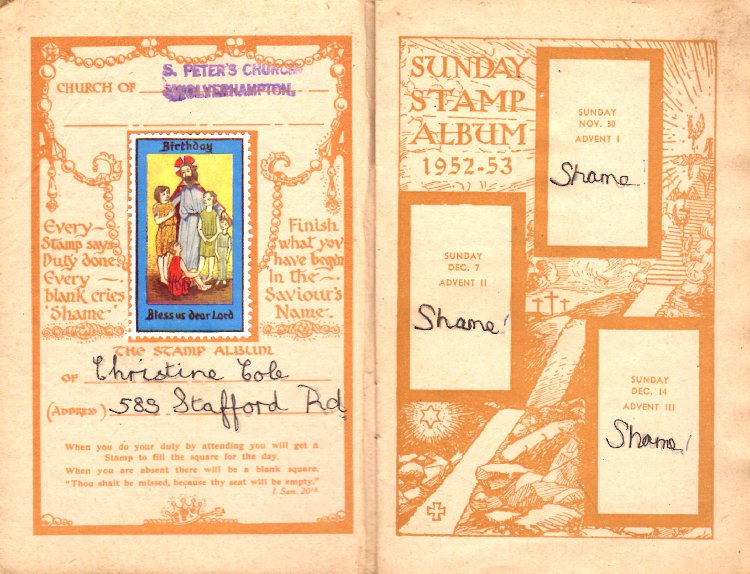 CHURCH OF S. PETER'S CHURCH
WOLVERHAMPTON.
Birthday
Bless us dear Lord
Every
Stamp says
Duty done
Every
blank cries
"Shame"
Finish
what you
have begun
In the
Saviour's
Name.
THE STAMP ALBUM
OF Christine Cole
(ADDRESS) 583 Stafford Rd
When you do your duty by attending you will get a
Stamp to fill the square for the day.
When you are absent there will be a blank square.
"Thou shalt be missed, because thy seat will be empty."
I. Sam. 20¹⁸.
SUNDAY
STAMP
ALBUM
1952-53
SUNDAY
NOV. 30
ADVENT I
Shame
SUNDAY
DEC. 7
ADVENT II
Shame!
SUNDAY
DEC. 14
ADVENT III
Shame!